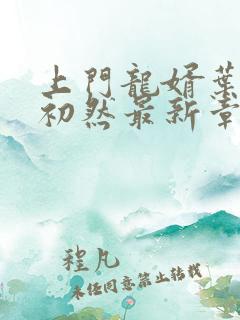 上門龍婿葉
初然最新章
程凡
未经同意禁止转载